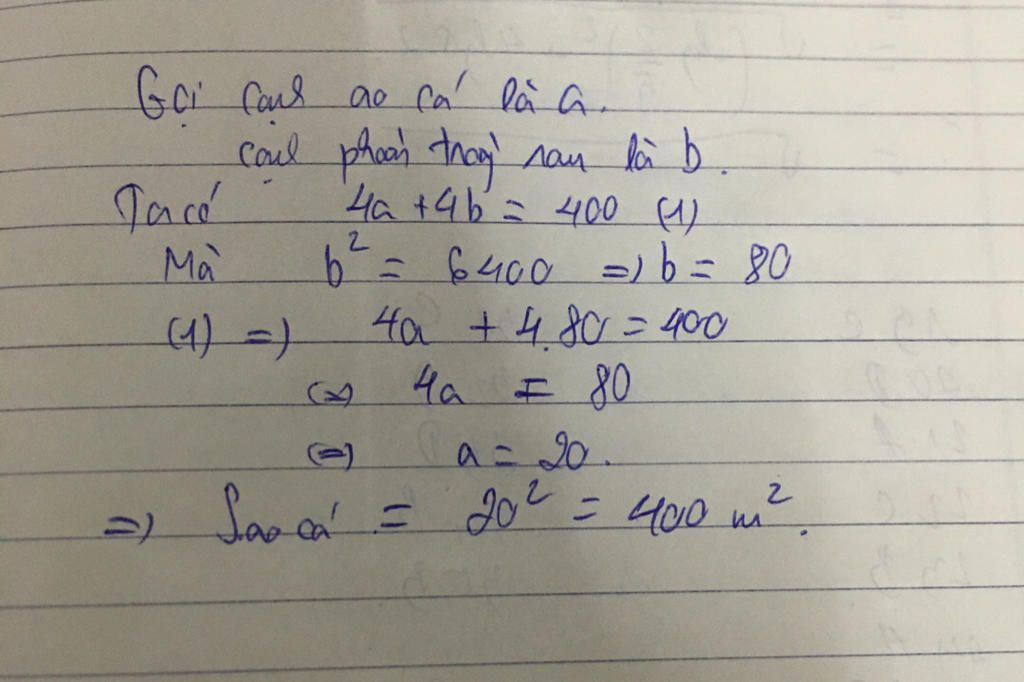 Gọi cạnh ao cá là a.
cạnh phần trồng rau là b.
Ta có 4a + 4b = 400 (1)
Mà b² = 6400 => b = 80
(1) => 4a + 4.80 = 400
(=) 4a = 80
(=) a = 20.
=> S ao cá = 20² = 400 m².